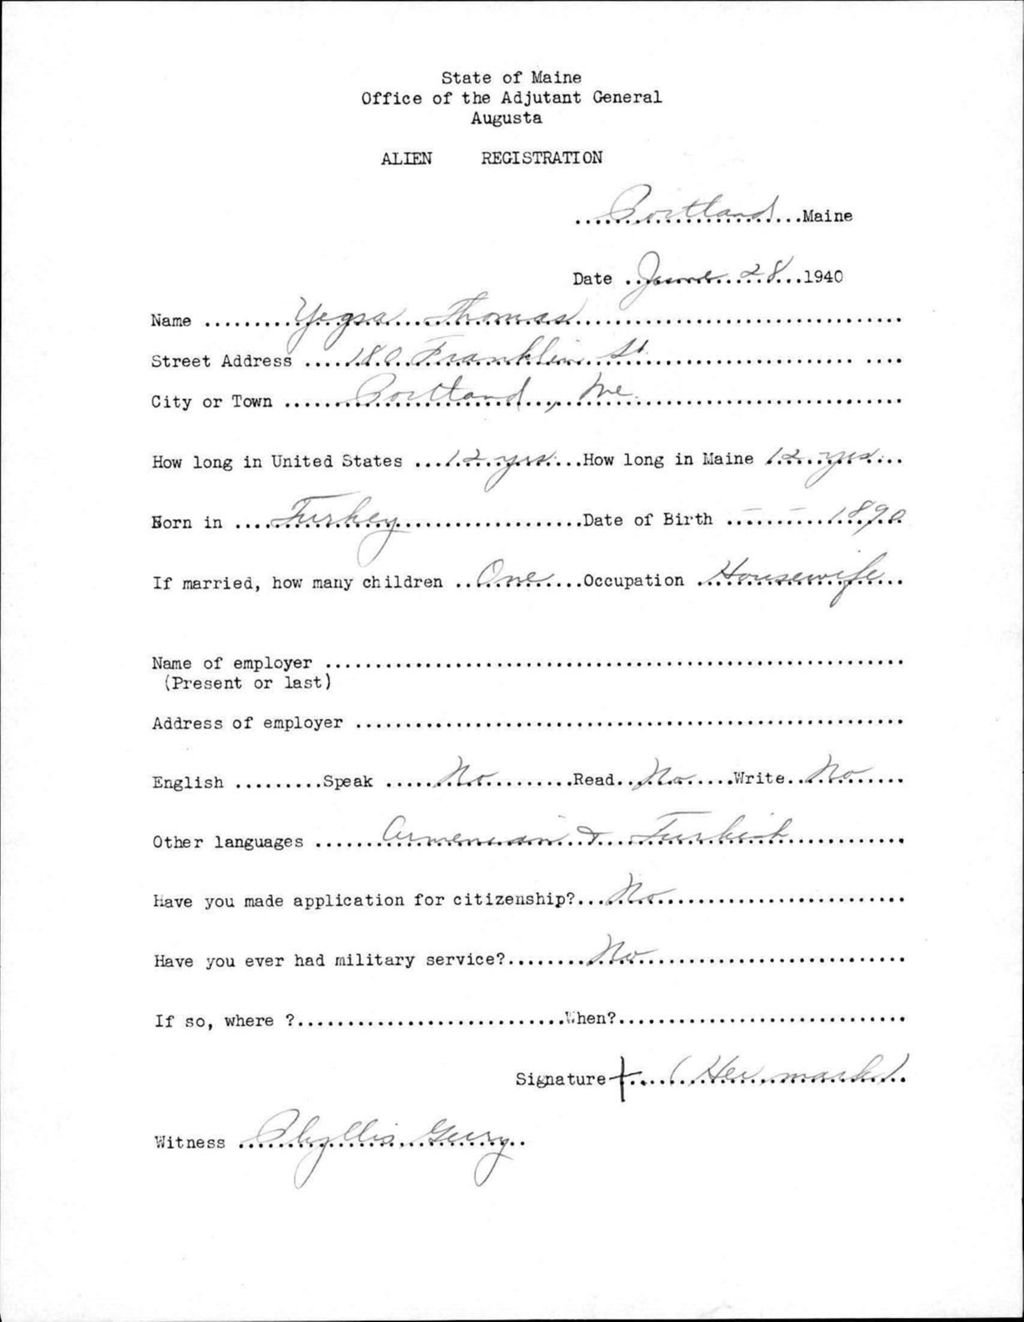 State of Maine
Office of the Adjutant General
Augusta
ALIEN REGISTRATION
Portland Maine
Date June 28 1940
Name Yegsa Thomas
Street Address 180 Franklin St
City or Town Portland, Me.
How long in United States 12 yrs. How long in Maine 12 yrs.
Born in Turkey Date of Birth — — 1890
If married, how many children One Occupation Housewife
Name of employer
(Present or last)
Address of employer
English Speak No Read No Write No
Other languages Armenian & Turkish
Have you made application for citizenship? No
Have you ever had military service? No
If so, where ? When?
Signature + (Her mark)
Witness Phyllis Geery